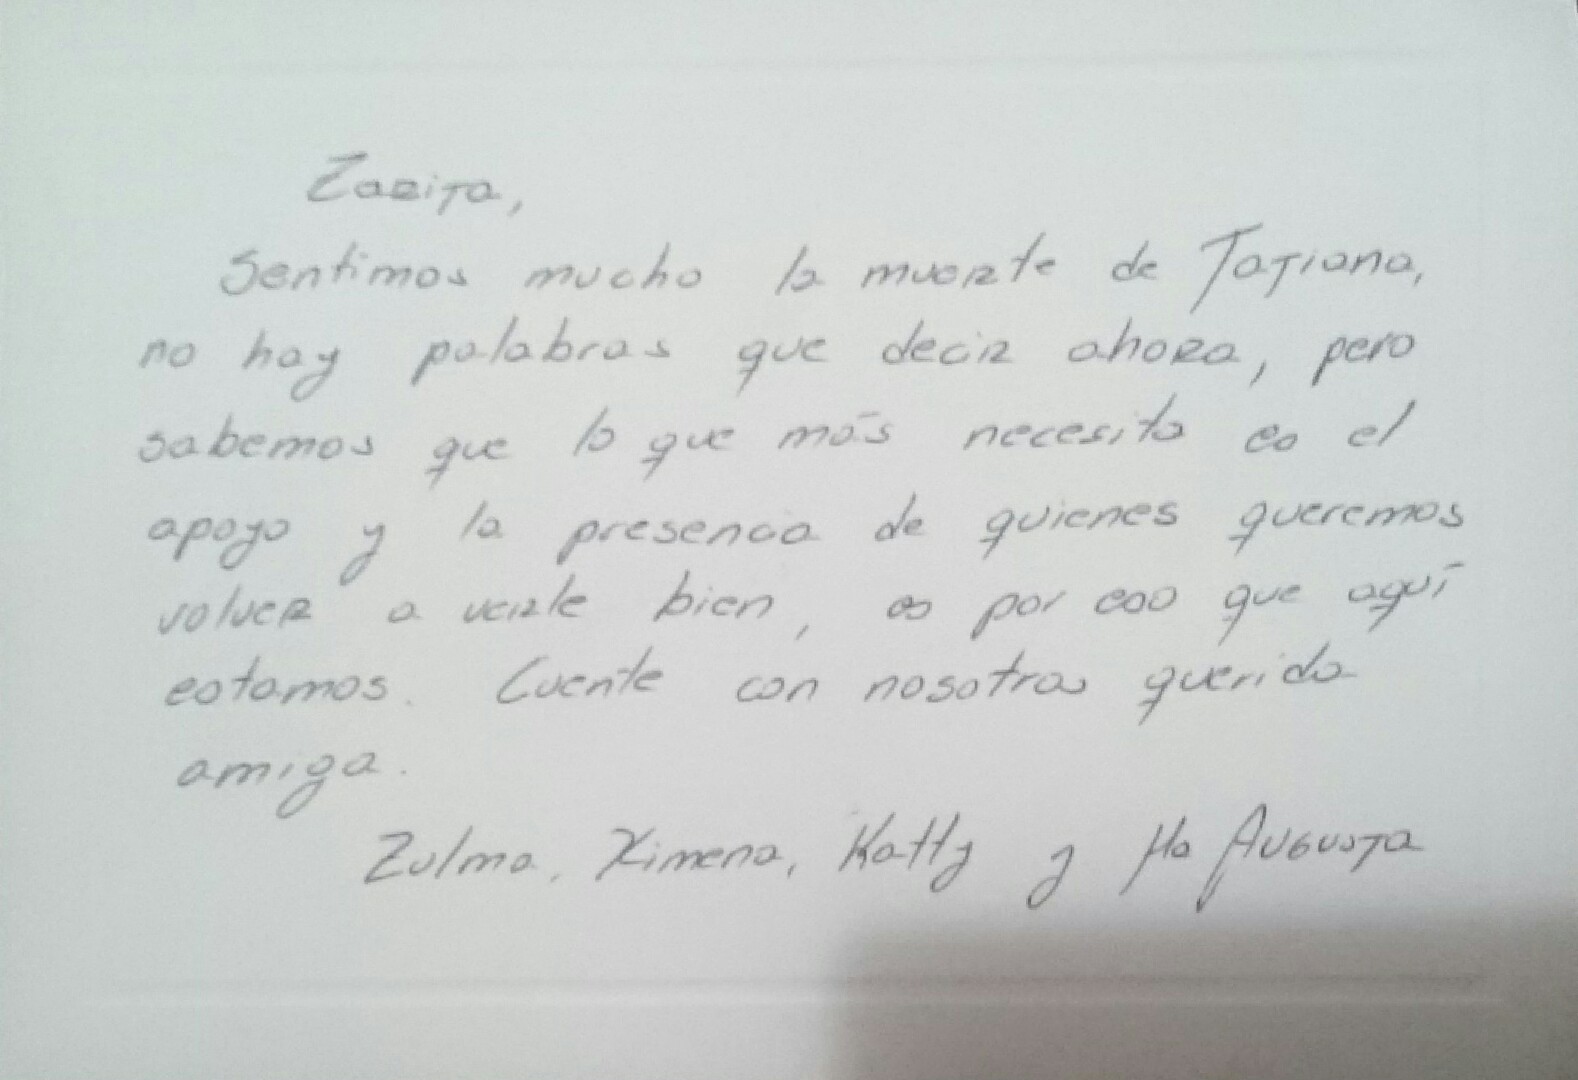 Zarita,
Sentimos mucho la muerte de Tatiana,
no hay palabras que decir ahora, pero
sabemos que lo que más necesita es el
apoyo y la presencia de quienes queremos
volver a verle bien, es por eso que aquí
estamos. Cuente con nosotras querida
amiga.
Zulma, Ximena, Katty y Ma Augusta